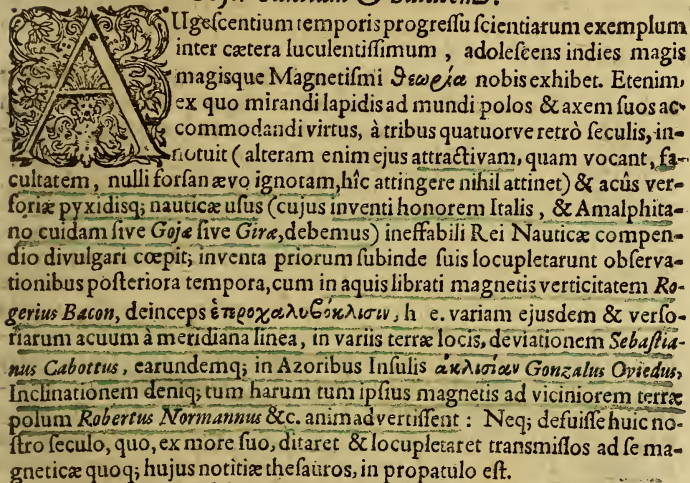 AUgeſcentium temporis progreſſu ſcientiarum exemplum
inter cætera luculentiſſimum , adoleſcens indies magis
magisque Magnetiſmi ϑεωρία nobis exhibet. Etenim,
ex quo mirandi lapidis ad mundi polos & axem ſuos ac-
commodandi virtus, à tribus quatuorve retrò ſeculis, in-
notuit ( alteram enim ejus attractivam, quam vocant, fa-
cultatem , nulli forſan ævo ignotam, hîc attingere nihil attinet) & acûs ver-
ſoriæ pyxidisq; nauticæ uſus (cujus inventi honorem Italis , & Amalphita-
no cuidam ſive Gojæ ſive Giræ, debemus) ineffabili Rei Nauticæ compen-
dio divulgari cœpit; inventa priorum ſubinde ſuis locupletarunt obſerva-
tionibus poſteriora tempora, cum in aquis librati magnetis verticitatem Ro-
gerius Bacon, deinceps ἑτεροχαλυβόκλισιν, h e. variam ejusdem & verſo-
riarum acuum à meridiana linea , in variis terræ locis, deviationem Sebaſtia-
nus Cabottus , earundemq; in Azoribus Inſulis ἀκλισίαν Gonzalus Oviedus,
Inclinationem deniq; tum harum tum ipſius magnetis ad viciniorem terræ
polum Robertus Normannus &c. animadvertiſſent : Neq; defuiſſe huic no-
ſtro ſeculo, quo, ex more ſuo, ditaret & locupletaret transmiſſos ad ſe ma-
gneticæ quoq; hujus notitiæ theſauros, in propatulo eſt.